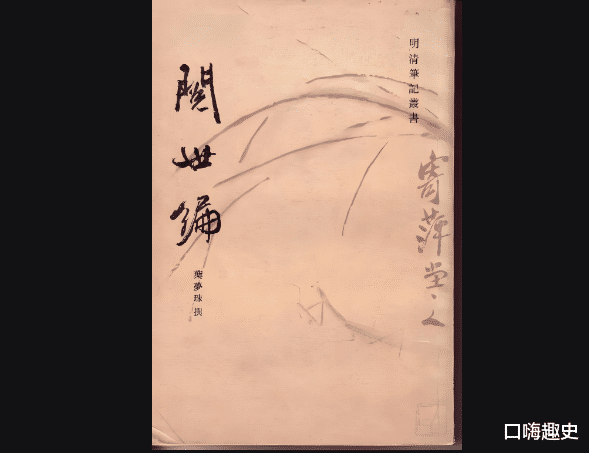 明清筆記叢書
閱世編
葉夢珠撰
寄萍堂上
口嗨趣史